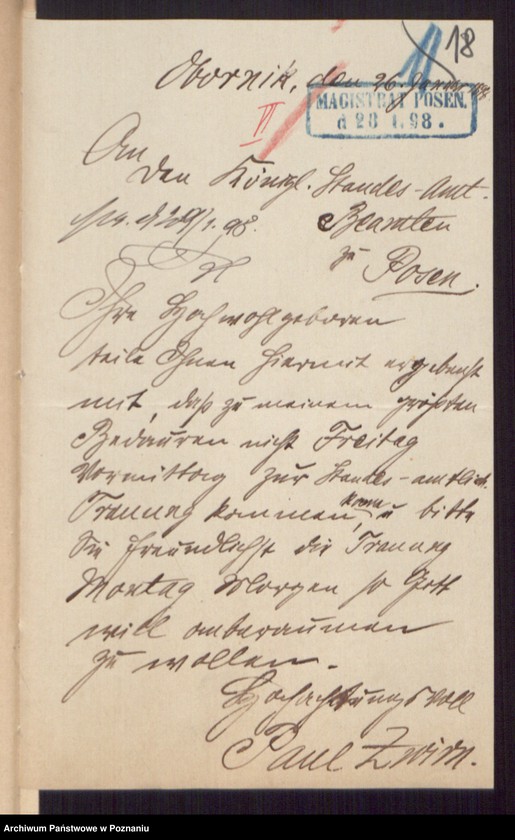 18
Obornik, den 26. Januar 98.
MAGISTRAT POSEN.
d 28 1. 98.
VI
An
den Königl. Standes-Amt-
Beamten
zu
Posen.
Ihre Hochwohlgeboren
teile Ihnen hiermit ergebenst
mit, daß zu meinem größten
Bedauren nicht Freitag
Vormittag zur Standes-amtlich.
Trauung kommen, kann u bitte
Sie freundlichst die Trauung
Montag Morgen so Gott
will anberaumen
zu wollen.
Hochachtungsvoll
Paul Zwirn.
Archiwum Państwowe w Poznaniu